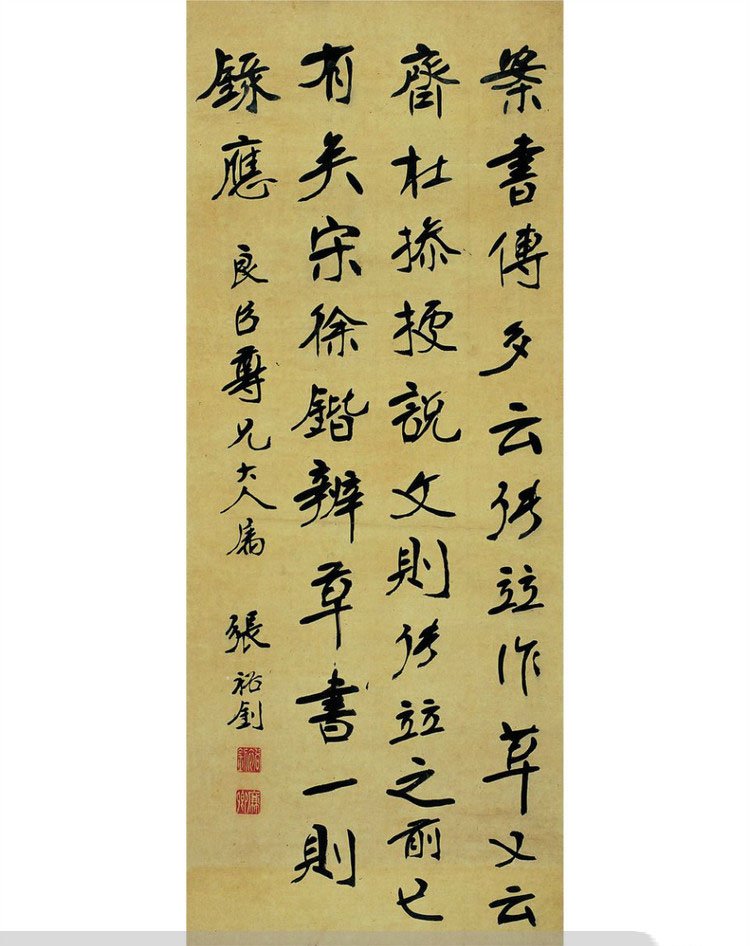 案書傳多云張竝作草又云
齊杜探據說文則張竝之前已
有矣宋徐鍇辨草書一則
錄應
良臣尊兄大人屬
張裕釗